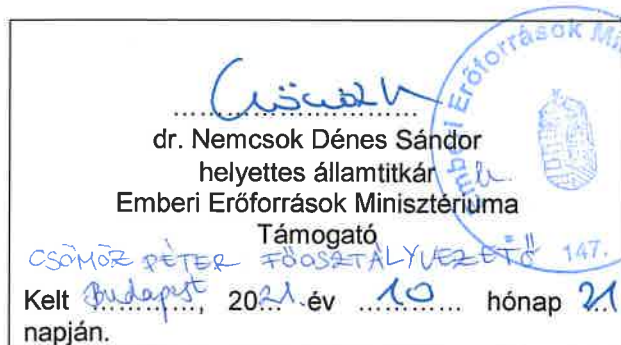 dr. Nemcsok Dénes Sándor
helyettes államtitkár h.
Emberi Erőforrások Minisztériuma
Támogató
CSÖMÖZ PÉTER FŐOSZTÁLYVEZETŐ
Kelt Budapest, 2021. év 10 hónap 21
napján.
Emberi Erőforrások Mi
147.